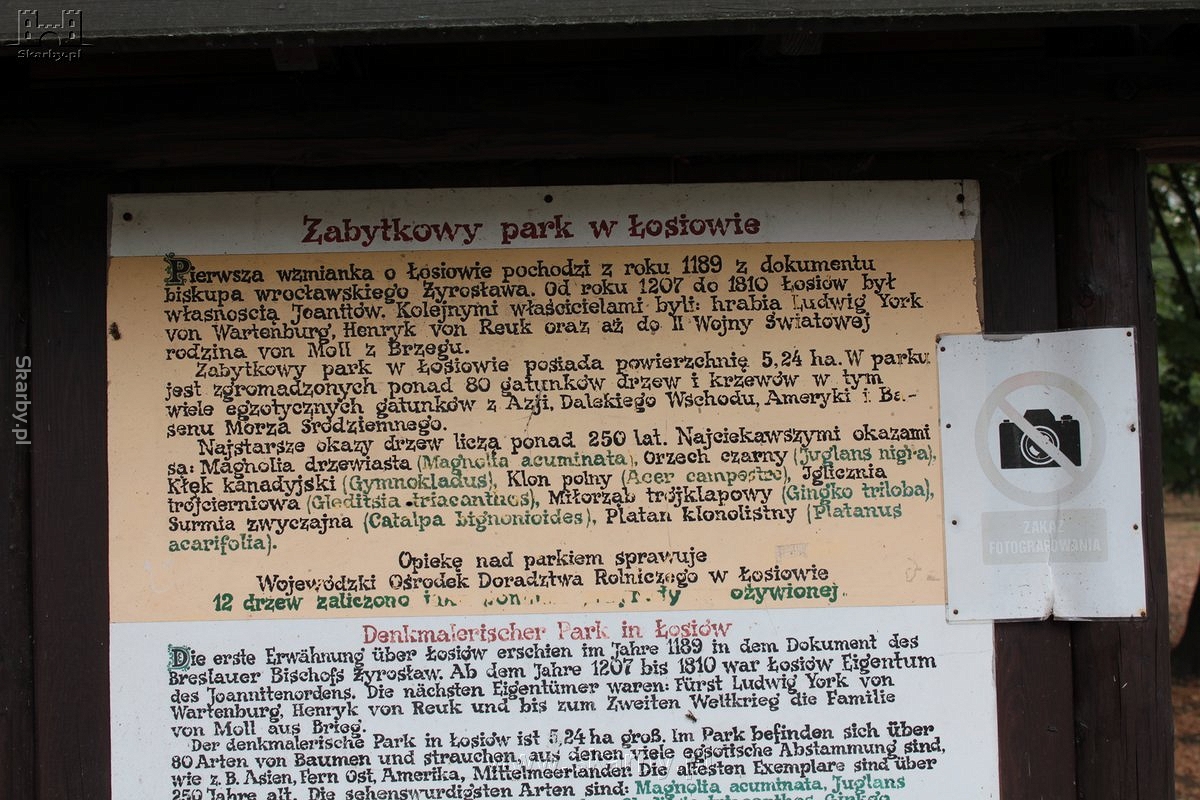 Skarby.pl
Skarby.pl
Zabytkowy park w Łosiowie
Pierwsza wzmianka o Łosiowie pochodzi z roku 1189 z dokumentu
biskupa wrocławskiego Żyrosława. Od roku 1207 do 1810 Łosiów był
własnoscią Joanitów. Kolejnymi właścicielami byli: hrabia Ludwig York
von Wartenburg, Henryk von Reuk oraz aż do II Wojny Światowej
rodzina von Moll z Brzegu.
Zabytkowy park w Łosiowie posiada powierzchnię 5,24 ha. W parku
jest zgromadzonych ponad 80 gatunków drzew i krzewów w tym
wiele egzotycznych gatunków z Azji, Dalekiego Wschodu, Ameryki i Ba-
senu Morza Śródziemnego.
Najstarsze okazy drzew liczą ponad 250 lat. Najciekawszymi okazami
są: Magnolia drzewiasta (Magnolia acuminata), Orzech czarny (Juglans nigra),
Kłęk kanadyjski (Gymnokladus), Klon polny (Acer campestre), Iglicznia
trójcierniowa (Gleditsia triacanthos), Miłorząb trójklapowy (Gingko triloba),
Surmia zwyczajna (Catalpa bignonioides), Platan klonolistny (Platanus
acarifolia).
Opiekę nad parkiem sprawuje
Wojewódzki Ośrodek Doradztwa Rolniczego w Łosiowie
12 drzew zaliczono ożywionej.
ZAKAZ
FOTOGRAFOWANIA
Denkmalerischer Park in Łosiów
Die erste Erwähnung über Łosiów erschien im Jahre 1189 in dem Dokument des
Breslauer Bischofs Żyrosław. Ab dem Jahre 1207 bis 1810 war Łosiów Eigentum
des Joannitenordens. Die nächsten Eigentümer waren: Fürst Ludwig York von
Wartenburg, Henryk von Reuk und bis zum Zweiten Weltkrieg die Familie
von Moll aus Brieg.
Der denkmalerische Park in Łosiów ist 5,24 ha groß. Im Park befinden sich über
80 Arten von Baumen und strauchen, aus denen viele egsotische Abstammung sind,
wie z.B. Asien, Fern Ost, Amerika, Mittelmeerländer. Die altesten Exemplare sind über
250 Jahre alt. Die sehenswurdigsten Arten sind: Magnolia acuminata, Juglans
Ginkgo